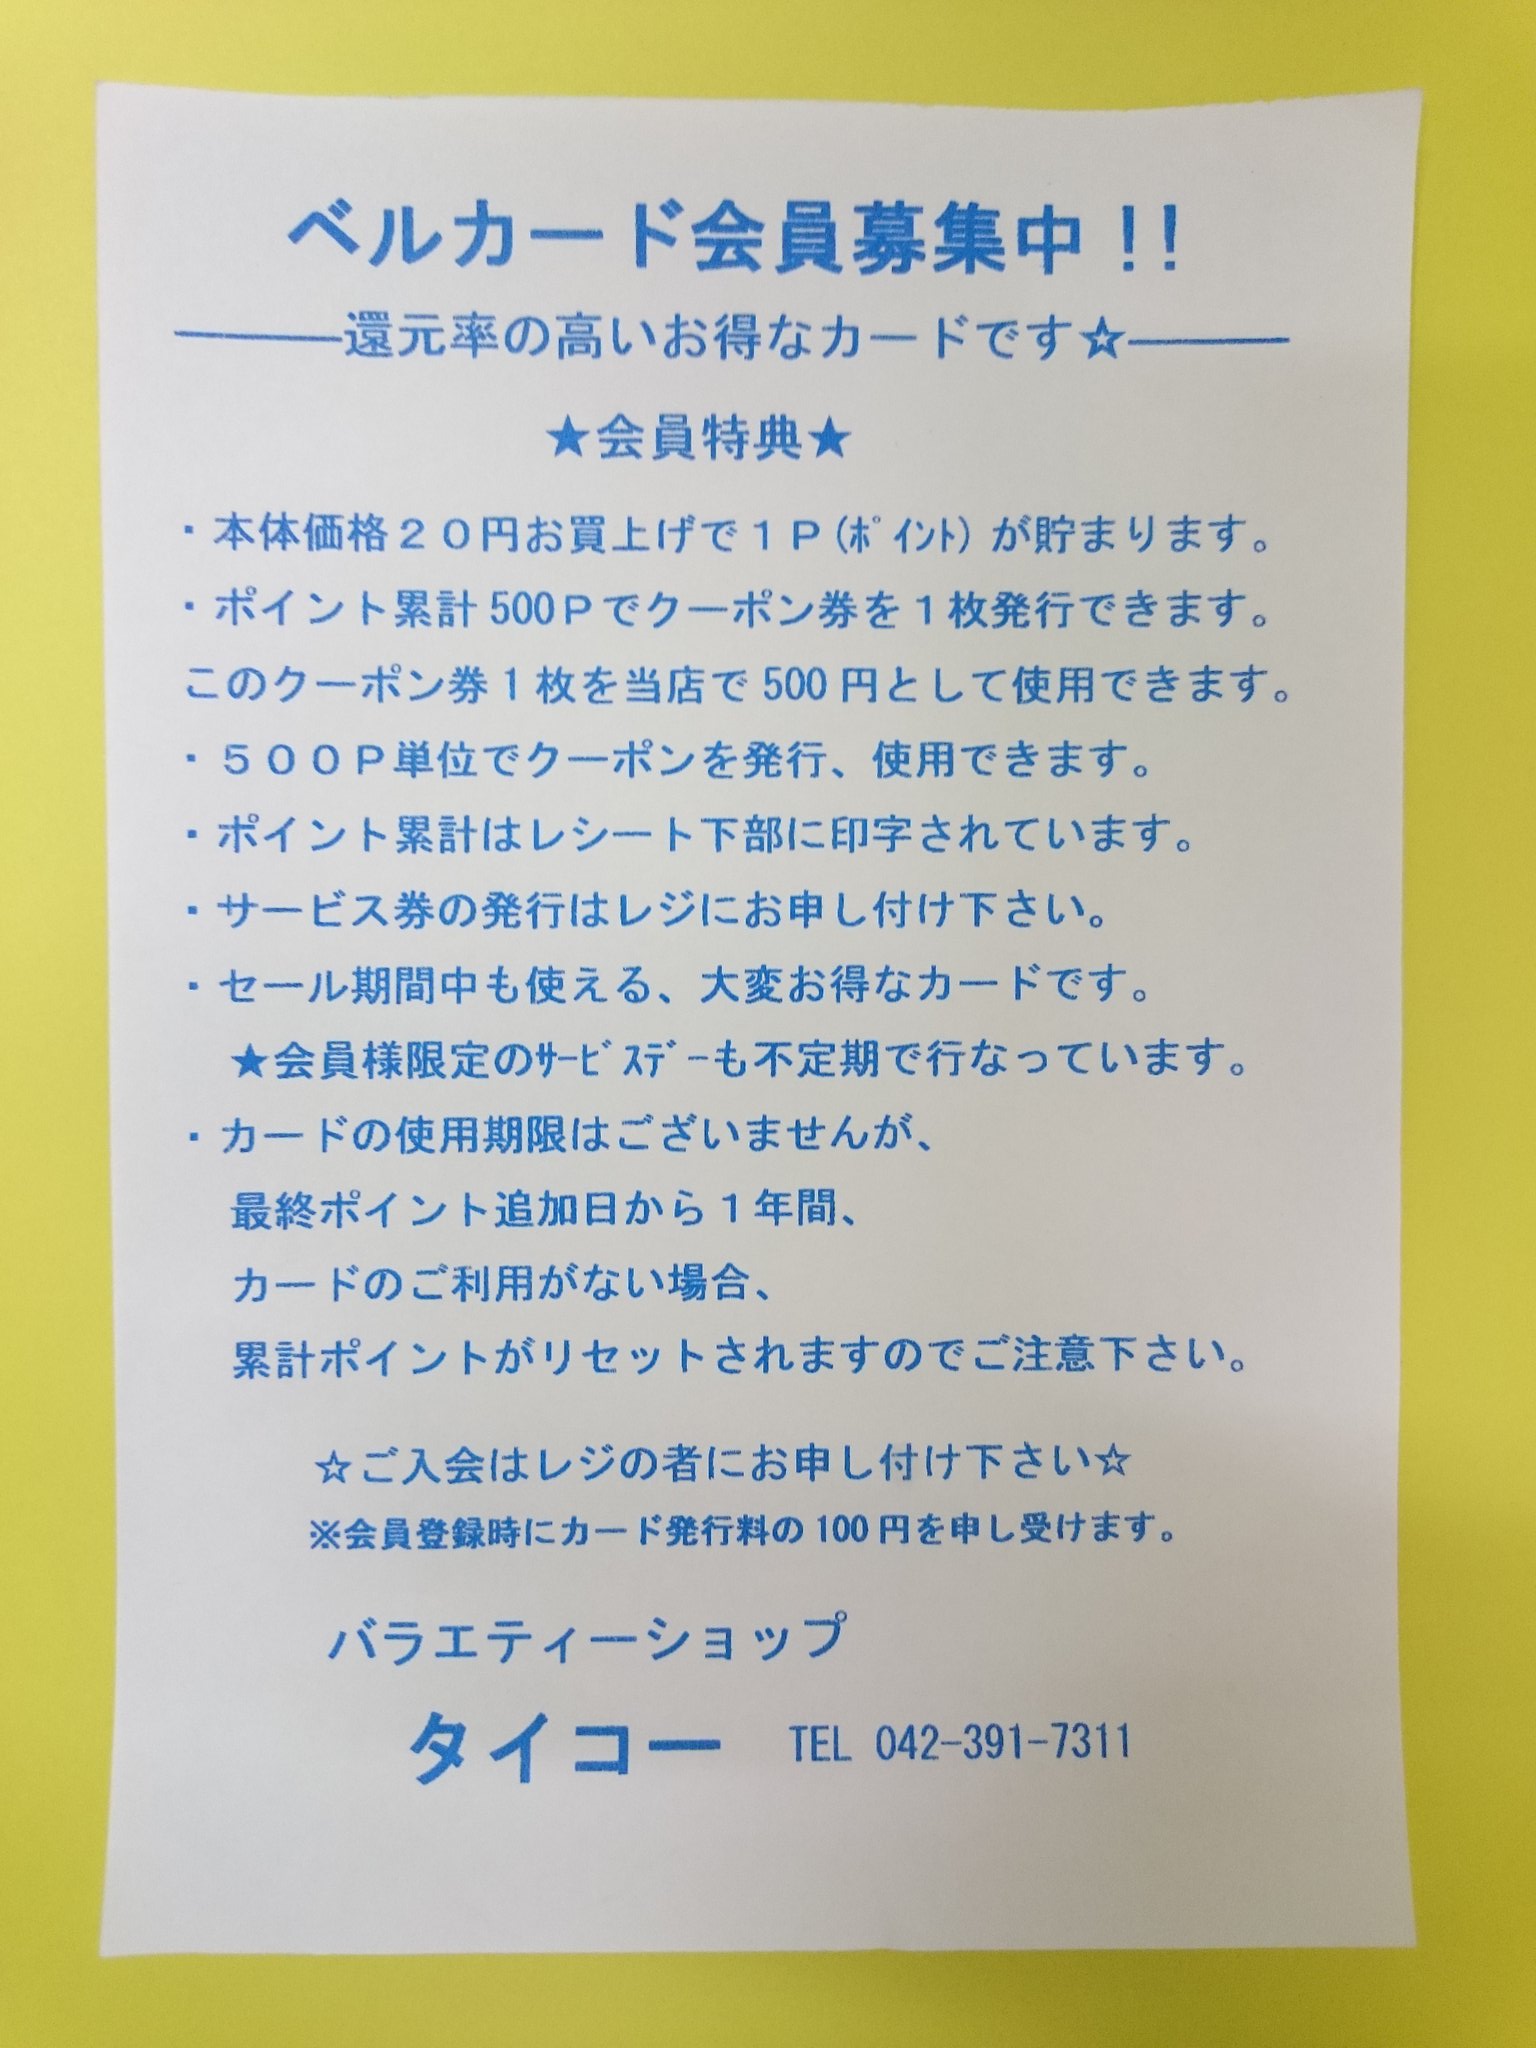 ベルカード会員募集中!!
還元率の高いお得なカードです☆
★会員特典★
・本体価格２０円お買上げで１Ｐ(ﾎﾟｲﾝﾄ)が貯まります。
・ポイント累計500Ｐでクーポン券を１枚発行できます。
このクーポン券1枚を当店で500円として使用できます。
・５００Ｐ単位でクーポンを発行、使用できます。
・ポイント累計はレシート下部に印字されています。
・サービス券の発行はレジにお申し付け下さい。
・セール期間中も使える、大変お得なカードです。
★会員様限定のｻｰﾋﾞｽﾃﾞｰも不定期で行なっています。
・カードの使用期限はございませんが、
最終ポイント追加日から１年間、
カードのご利用がない場合、
累計ポイントがリセットされますのでご注意下さい。
☆ご入会はレジの者にお申し付け下さい☆
※会員登録時にカード発行料の100円を申し受けます。
バラエティーショップ
タイコー TEL 042-391-7311